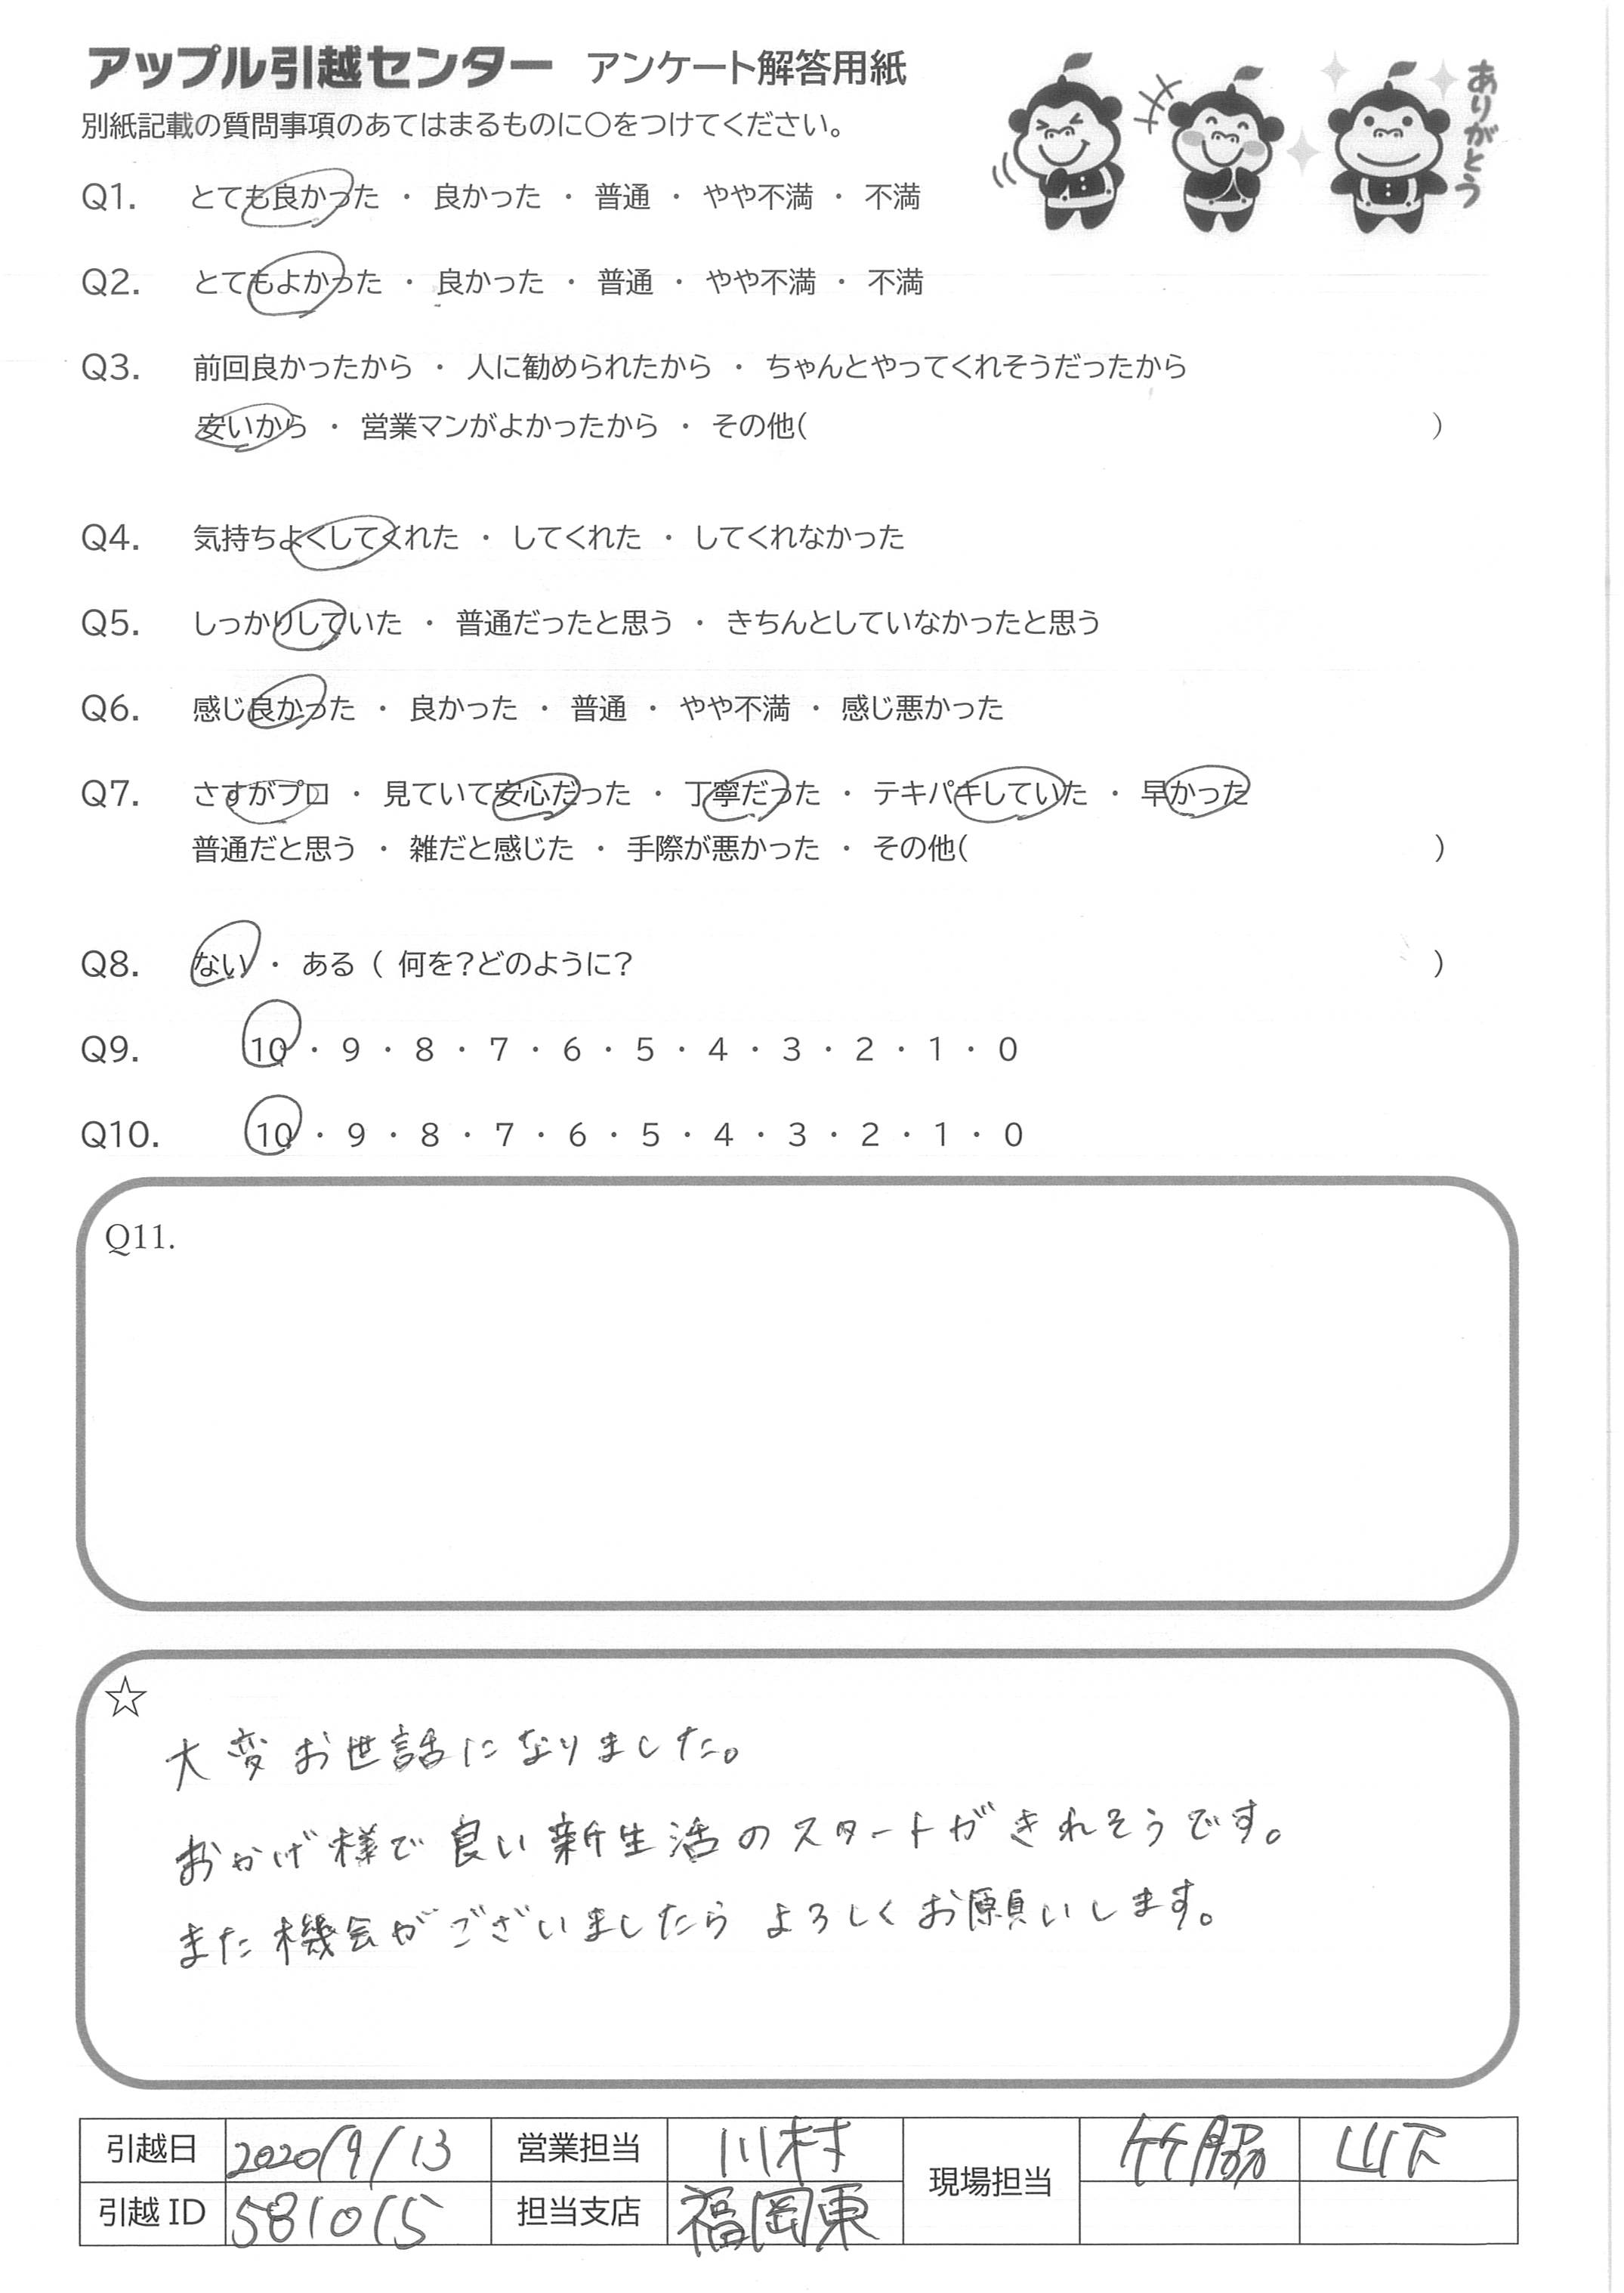 アップル引越センター アンケート解答用紙
ありがとう
別紙記載の質問事項のあてはまるものに○をつけてください。
Q1. とても良かった ・ 良かった ・ 普通 ・ やや不満 ・ 不満
Q2. とてもよかった ・ 良かった ・ 普通 ・ やや不満 ・ 不満
Q3. 前回良かったから ・ 人に勧められたから ・ ちゃんとやってくれそうだったから
安いから ・ 営業マンがよかったから ・ その他( )
Q4. 気持ちよくしてくれた ・ してくれた ・ してくれなかった
Q5. しっかりしていた ・ 普通だったと思う ・ きちんとしていなかったと思う
Q6. 感じ良かった ・ 良かった ・ 普通 ・ やや不満 ・ 感じ悪かった
Q7. さすがプロ ・ 見ていて安心だった ・ 丁寧だった ・ テキパキしていた ・ 早かった
普通だと思う ・ 雑だと感じた ・ 手際が悪かった ・ その他( )
Q8. ない ・ ある ( 何を?どのように? )
Q9. 10 ・ 9 ・ 8 ・ 7 ・ 6 ・ 5 ・ 4 ・ 3 ・ 2 ・ 1 ・ 0
Q10. 10 ・ 9 ・ 8 ・ 7 ・ 6 ・ 5 ・ 4 ・ 3 ・ 2 ・ 1 ・ 0
Q11.
☆
大変お世話になりました。
おかげ様で良い新生活のスタートがきれそうです。
また機会がございましたらよろしくお願いします。
引越日 2020/9/13 営業担当 川村 現場担当 竹脇 山下
引越ID 581015 担当支店 福岡東